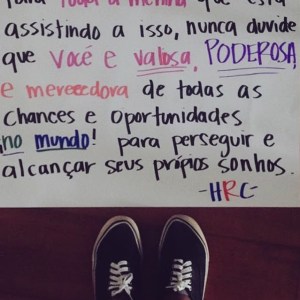 para toda a menina que está
assistindo a isso, nunca duvide
que você e valosa, PODEROSA,
e mereeedora de todas as
chances e oportunidades
no mundo! para perseguir e
alcançar seus própios sonhos.
-HRC-